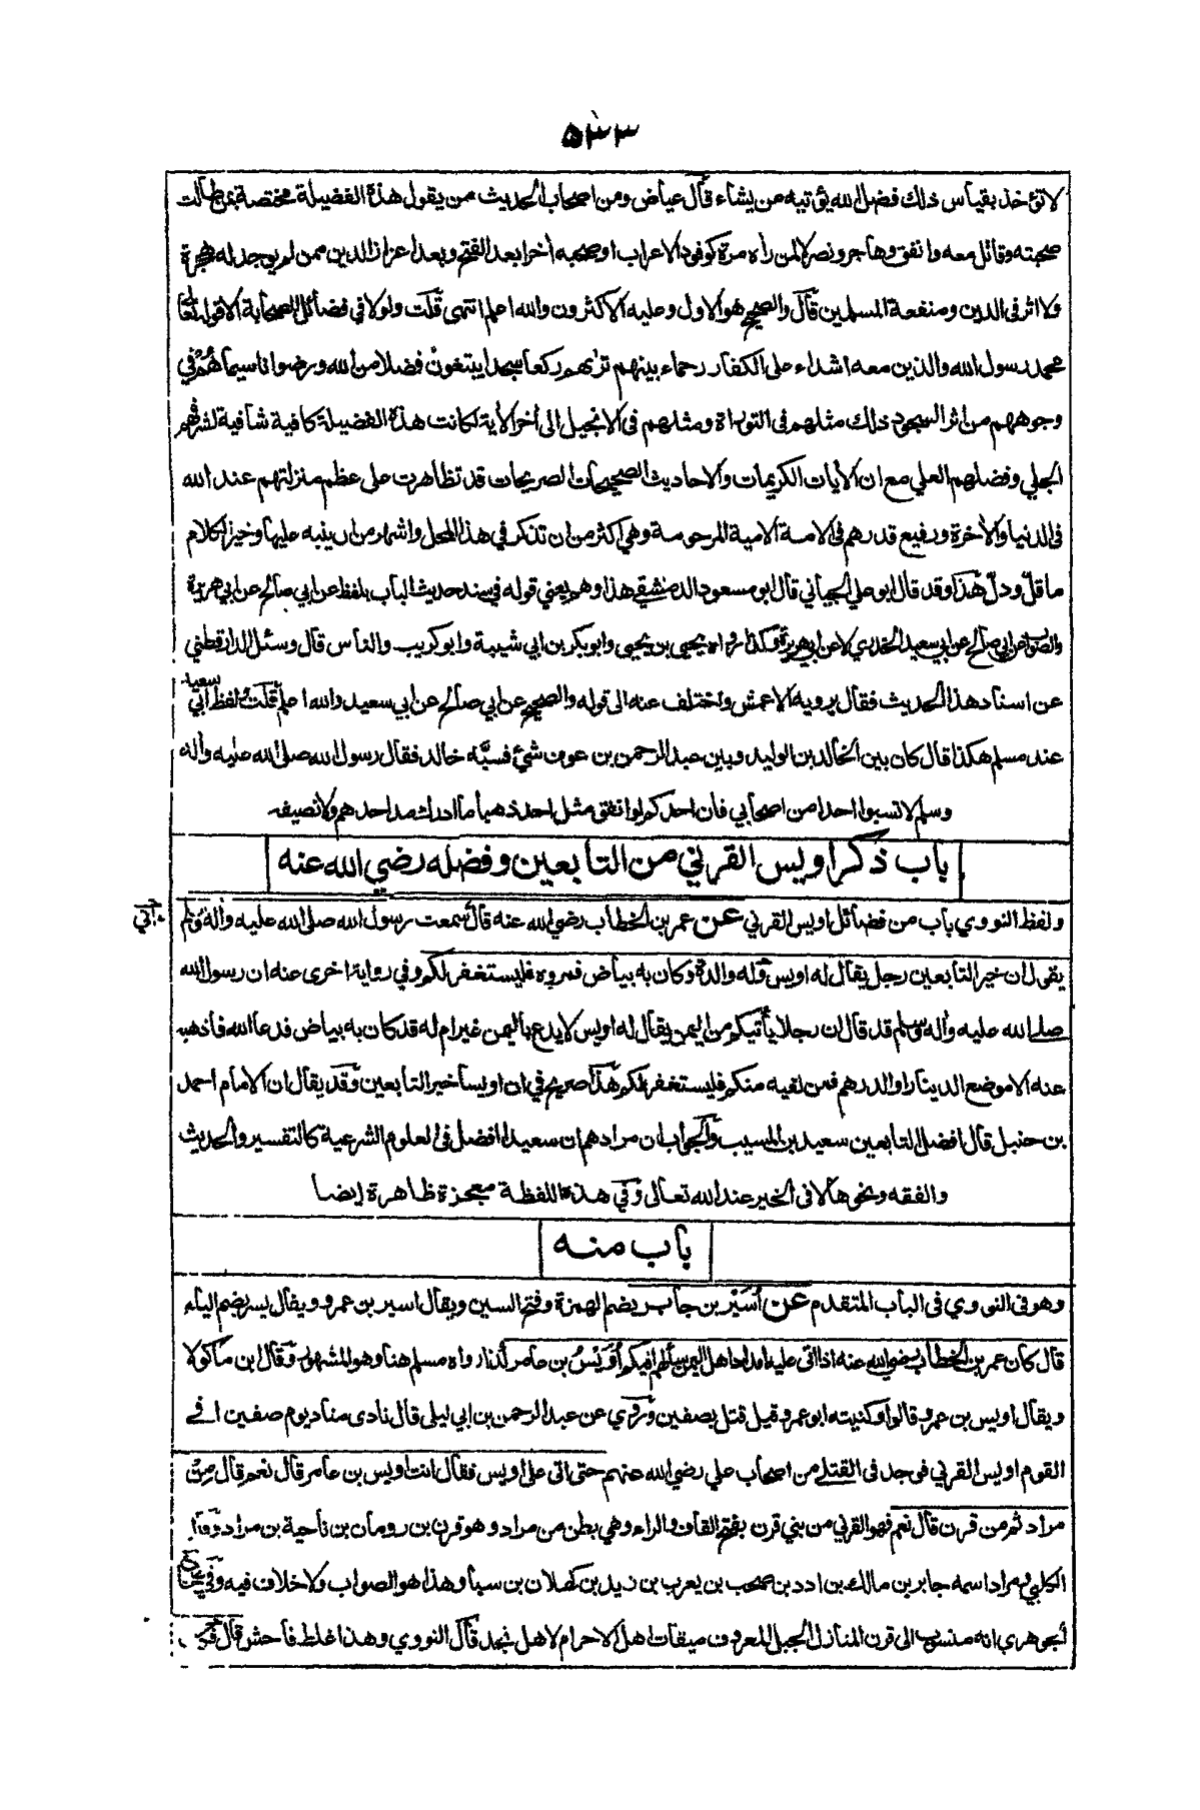 ٥٣٣
لا تؤخذ بقياس ذلك فضل الله يؤتيه من يشاء قال عياض ومن اصحاب الحديث من يقول هذه الفضيلة مختصة بمن طالت
صحبته وقاتل معه وانفق وهاجر ونصر لا لمن راه مرة كوفود الاعراب او صحبه أخرا بعد الفتح وبعد اعزاز الدين ممن لم يوجد له هجرة
ولا اثر في الدين ومنفعة المسلمين قال والصحيح هو الاول وعليه الاكثرون والله اعلم انتهى قلت ولو لا في فضائل الصحابة الا قوله تعالى
محمد رسول الله والذين معه اشداء على الكفار رحماء بينهم تراهم ركعا سجدا يبتغون فضلا من الله ورضوانا سيماهم في
وجوههم من اثر السجود ذلك مثلهم في التوراة ومثلهم في الانجيل الى أخر الأية لكانت هذه الفضيلة كافية شافية لشرفهم
الجلي وفضلهم العلي مع ان الأيات الكريمات والاحاديث الصحيحات الصريحات قد تظاهرت على عظم منزلتهم عند الله
في الدنيا والأخرة ورفيع قدرهم في الامة الامية المرحومة وهي اكثر من ان تذكر في هذا المحل واشهر من ان ينبه عليها وخير الكلام
ما قلّ ودلّ هذا وقد قال ابو علي الجياني قال ابو مسعود الدمشقي هذا وهم يعني قوله في سند حديث الباب بلفظ عن ابي صالح عن ابي هريرة
والصواب عن ابي صالح عن ابي سعيد الخدري لا عن ابي هريرة وكذا رواه يحيى بن يحيى وابو بكر بن ابي شيبة وابو كريب والناس قال وسئل الدارقطني
عن اسناد هذا الحديث فقال يرويه الاعمش واختلف عنه الى قوله والصحيح عن ابي صالح عن ابي سعيد والله اعلم قلت لفظ ابي سعيد
عند مسلم هكذا قال كان بين الخالد بن الوليد وبين عبد الرحمن بن عوف شئ فسبّه خالد فقال رسول الله صلى الله عليه وأله
وسلم لا تسبوا احدا من اصحابي فان احدكم لو انفق مثل احد ذهبا ما ادرك مد احدهم ولا نصيفه
باب ذكر اويس القرني من التابعين وفضله رضي الله عنه
ولفظ النووي باب من فضائل اويس القرني عن عمر بن الخطاب رضي الله عنه قال سمعت رسول الله صلى الله عليه وأله وسلم
يقول ان خير التابعين رجل يقال له اويس وله والدة وكان به بياض فمروه فليستغفر لكم وفي رواية اخرى عنه ان رسول الله
صلى الله عليه وأله وسلم قد قال ان رجلا يأتيكم من اليمن يقال له اويس لا يدع باليمن غير ام له قد كان به بياض فدعا الله فاذهبه
عنه الا موضع الدينار او الدرهم فمن لقيه منكم فليستغفر لكم هذا صريح في ان اويسا خير التابعين وقد يقال ان الامام احمد
بن حنبل قال افضل التابعين سعيد بن المسيب والجواب ان مرادهم ان سعيدا افضل في العلوم الشرعية كالتفسير والحديث
والفقه ونحوها لا في الخير عند الله تعالى وفي هذه اللفظة معجزة ظاهرة ايضا
باب منه
وهو في النووي في الباب المتقدم عن أُسَيْر بن جابر بضم الهمزة وفتح السين ويقال اسير بن عمرو ويقال يسير بضم الياء
قال كان عمر بن الخطاب رضي الله عنه اذا اتى عليه امداد اهل اليمن سألهم افيكم أُوَيْسُ بن عامر كذا رواه مسلم هنا وهو المشهور وقال ابن ماكولا
ويقال اويس بن عمرو قالوا وكنيته ابو عمرو قيل قتل بصفين وروي عن عبد الرحمن بن ابي ليلى قال نادى مناد يوم صفين افي
القوم اويس القرني فوجد في القتلى من اصحاب علي رضي الله عنهم حتى اتى على اويس فقال انت اويس بن عامر قال نعم قال من
مراد ثم من قرن قال نعم فهو القرني من بني قرن بفتح القاف والراء وهي بطن من مراد وهو قرن بن رومان بن ناجية بن مراد وقال
الكلبي ومراد اسمه جابر بن مالك بن ادد بن صحب بن يعرب بن زيد بن كهلان بن سبا وهذا هو الصواب ولا خلاف فيه وفي صحاح
الجوهري انه منسوب الى قرن المنازل الجبل المعروف ميقات اهل الاحرام لاهل نجد قال النووي وهذا غلط فاحش قال